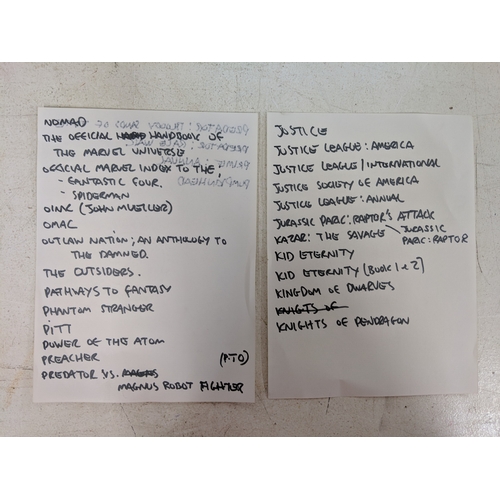 NOMAD
THE OFFICIAL HAND HANDBOOK OF
THE MARVEL UNIVERSE
OFFICIAL MARVEL INDEX TO THE;
- FANTASTIC FOUR.
- SPIDERMAN
OINK (JOHN MUELLER)
OMAC
OUTLAW NATION; AN ANTHOLOGY TO
THE DAMNED.
THE OUTSIDERS.
PATHWAYS TO FANTASY
PHANTOM STRANGER
PITT
POWER OF THE ATOM
PREACHER (PTO)
PREDATOR VS. MAGNUS
MAGNUS ROBOT FIGHTER
JUSTICE
JUSTICE LEAGUE: AMERICA
JUSTICE LEAGUE/INTERNATIONAL
JUSTICE SOCIETY OF AMERICA
JUSTICE LEAGUE: ANNUAL
JURASSIC PARK: RAPTOR'S ATTACK
KAZAR: THE SAVAGE JURASSIC
PARK: RAPTOR
KID ETERNITY
KID ETERNITY (BOOK 1 & 2)
KINGDOM OF DWARVES
KNIGTS OF
KNIGHTS OF PENDRAGON